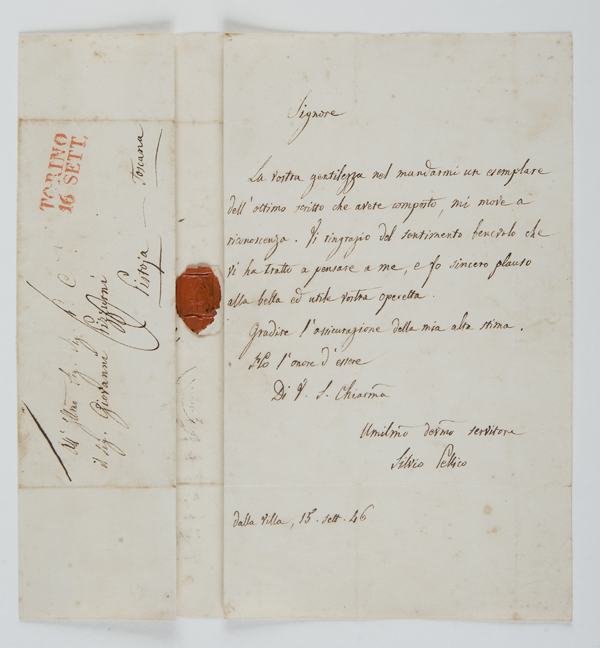 Signore
La vostra gentilezza nel mandarmi un esemplare
dell'ottimo scritto che avete composto, mi move a
riconoscenza. Vi ringrazio del sentimento benevolo che
vi ha tratto a pensare a me, e fo sincero plauso
alla bella ed utile vostra operetta.
Gradite l'assicurazione della mia alta stima.
Ho l'onore d'essere
Di V. S. Chiarma
Umilmo devmo servitore
Silvio Pellico
dalla villa, 15. sett. 46
TORINO
16 SETT.
All' Illmo Sig. Sig.
il sig. Giovanni
Pistoja
Toscana